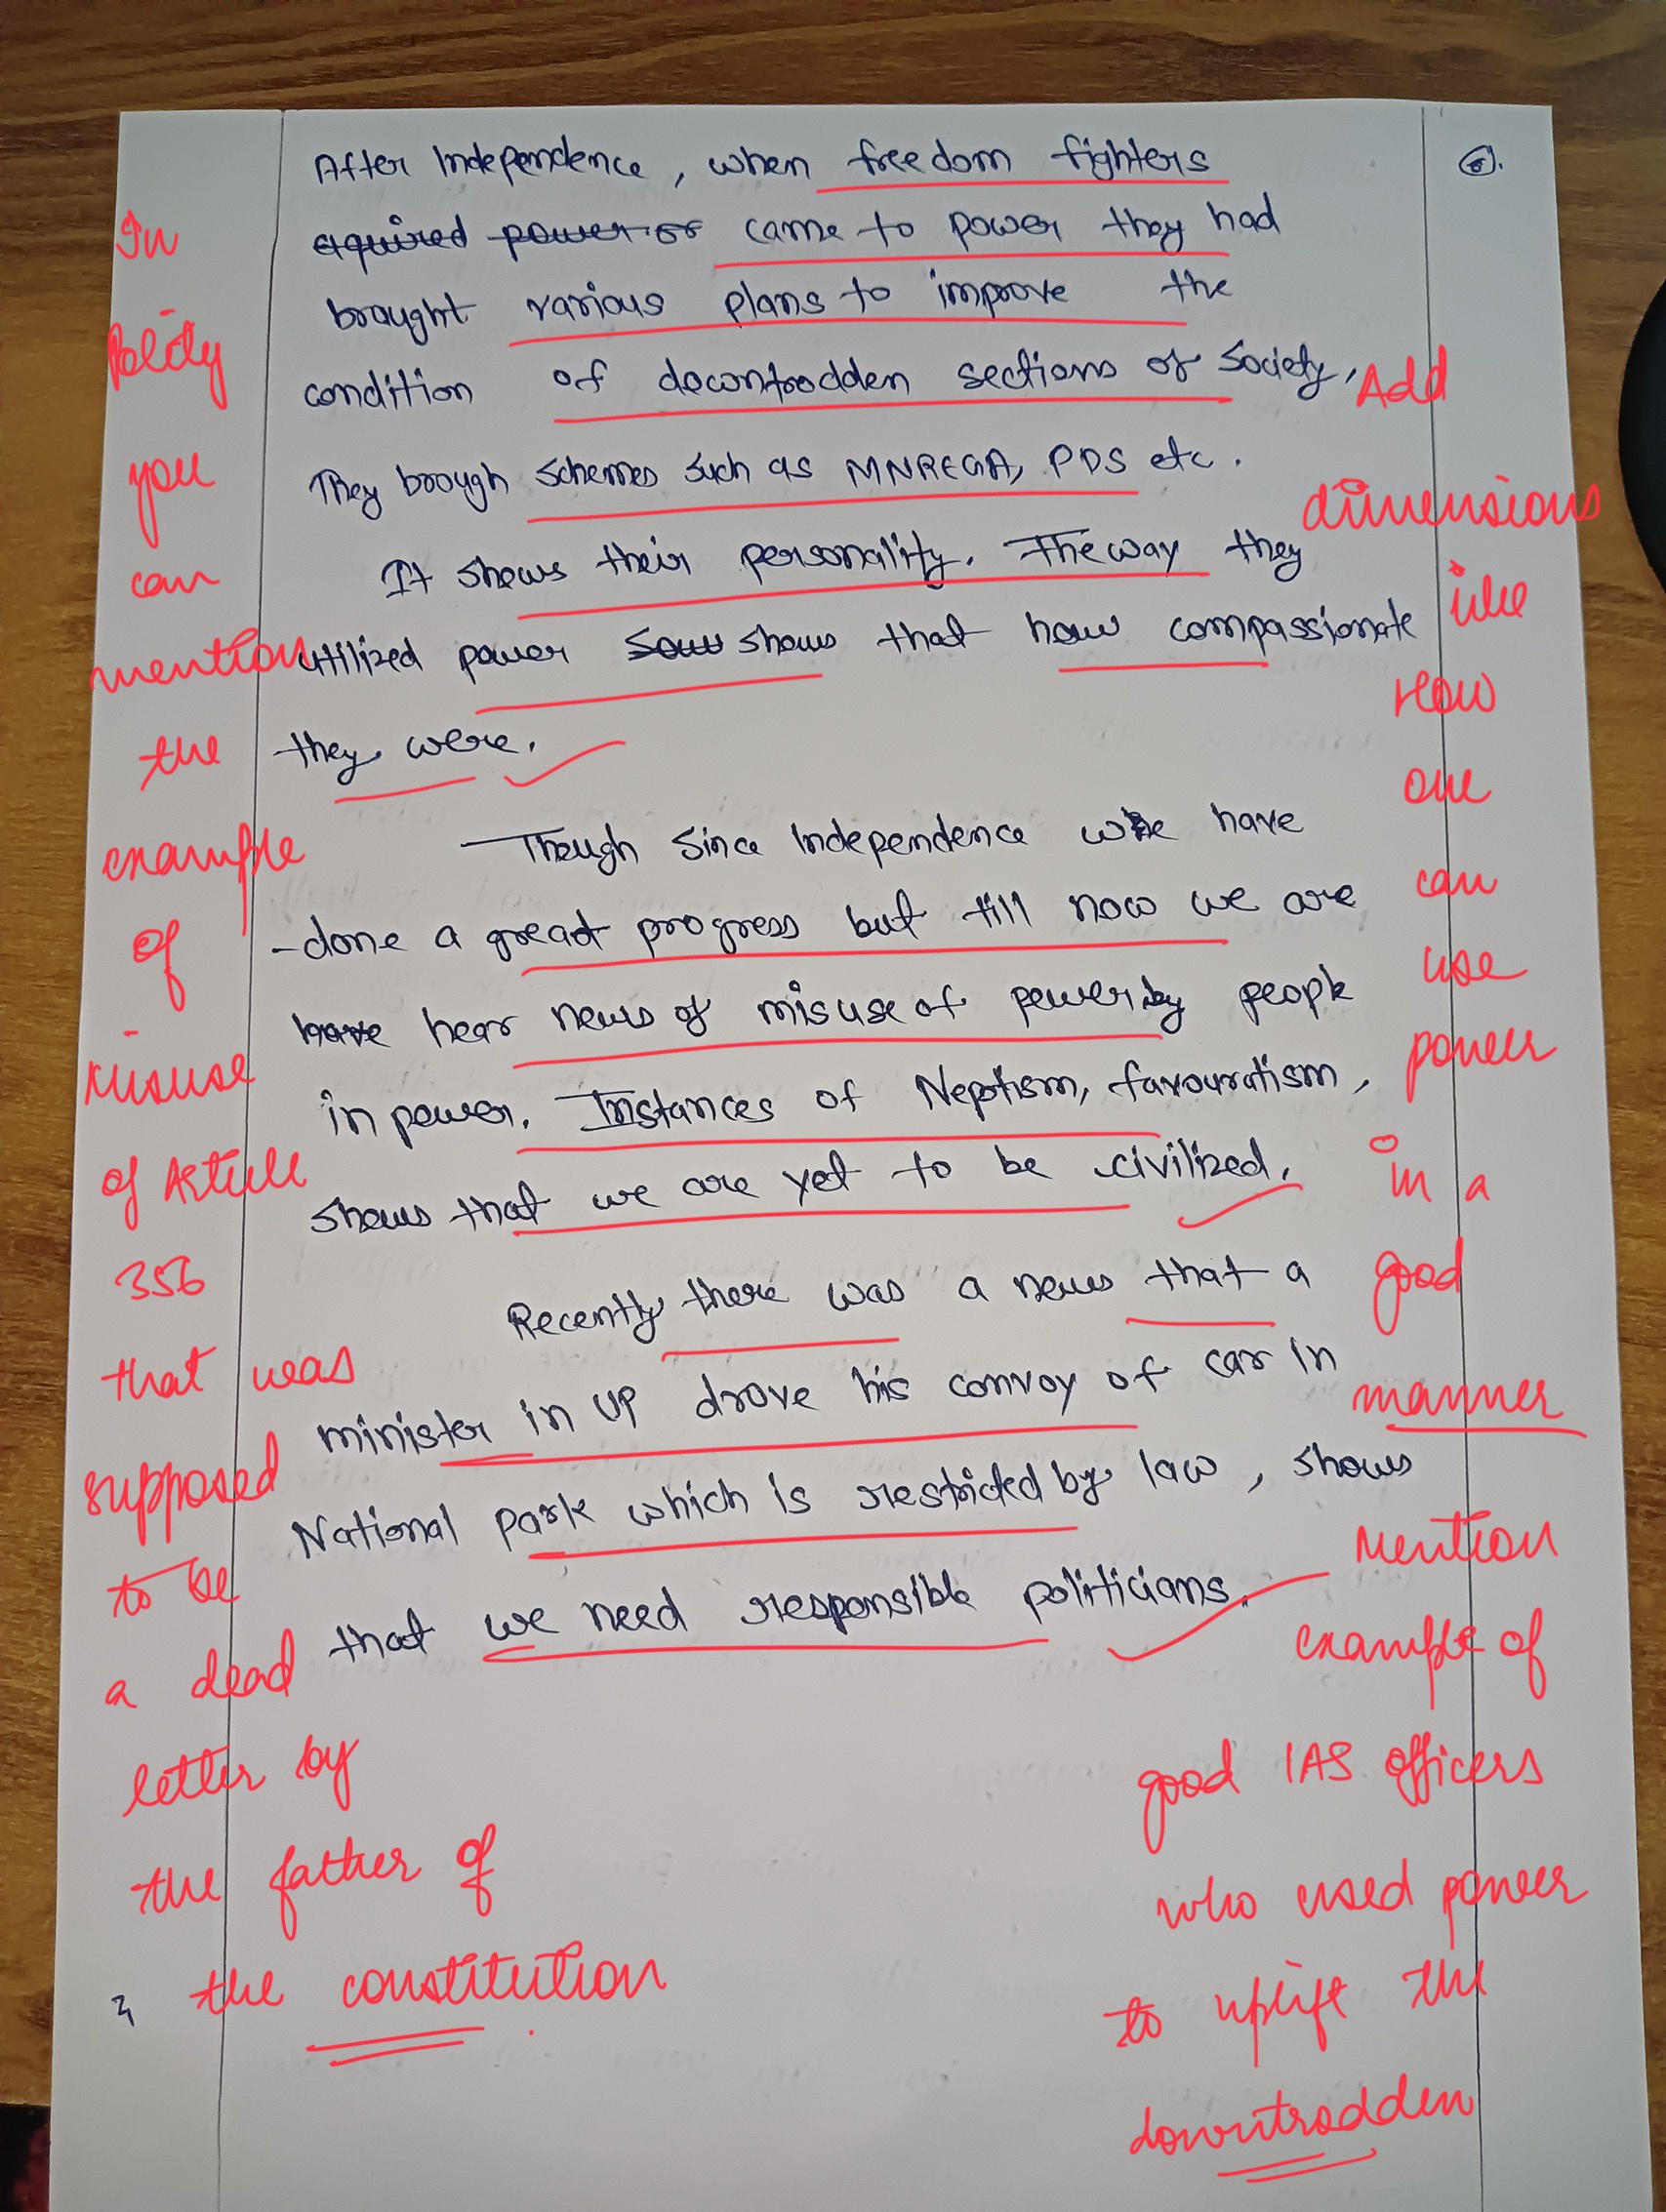 After Independence, when freedom fighters
aquired power or came to power they had
brought various plans to improve the
condition of downtrodden sections of society,
They brough schemes such as MNREGA, PDS etc.
It shows their personality. The way they
utilized power shows that how compassionate
they were.
Though since Independence we have
done a great progress but till now we are
have hear news of misuse of power by people
in power. Instances of Nepotism, favouratism,
shows that we are yet to be civilized.
Recently there was a news that a
minister in UP drove his convoy of car in
National park which is restricted by law, shows
that we need responsible politicians.
In
Polity
you
can
mention
the
example
of
Misuse
of Article
356
that was
supposed
to be
a dead
letter by
the father of
the constitution
Add
dimensions
like
How
one
can
use
power
in a
good
manner
Mention
example of
good IAS officers
who used power
to uplift the
downtrodden